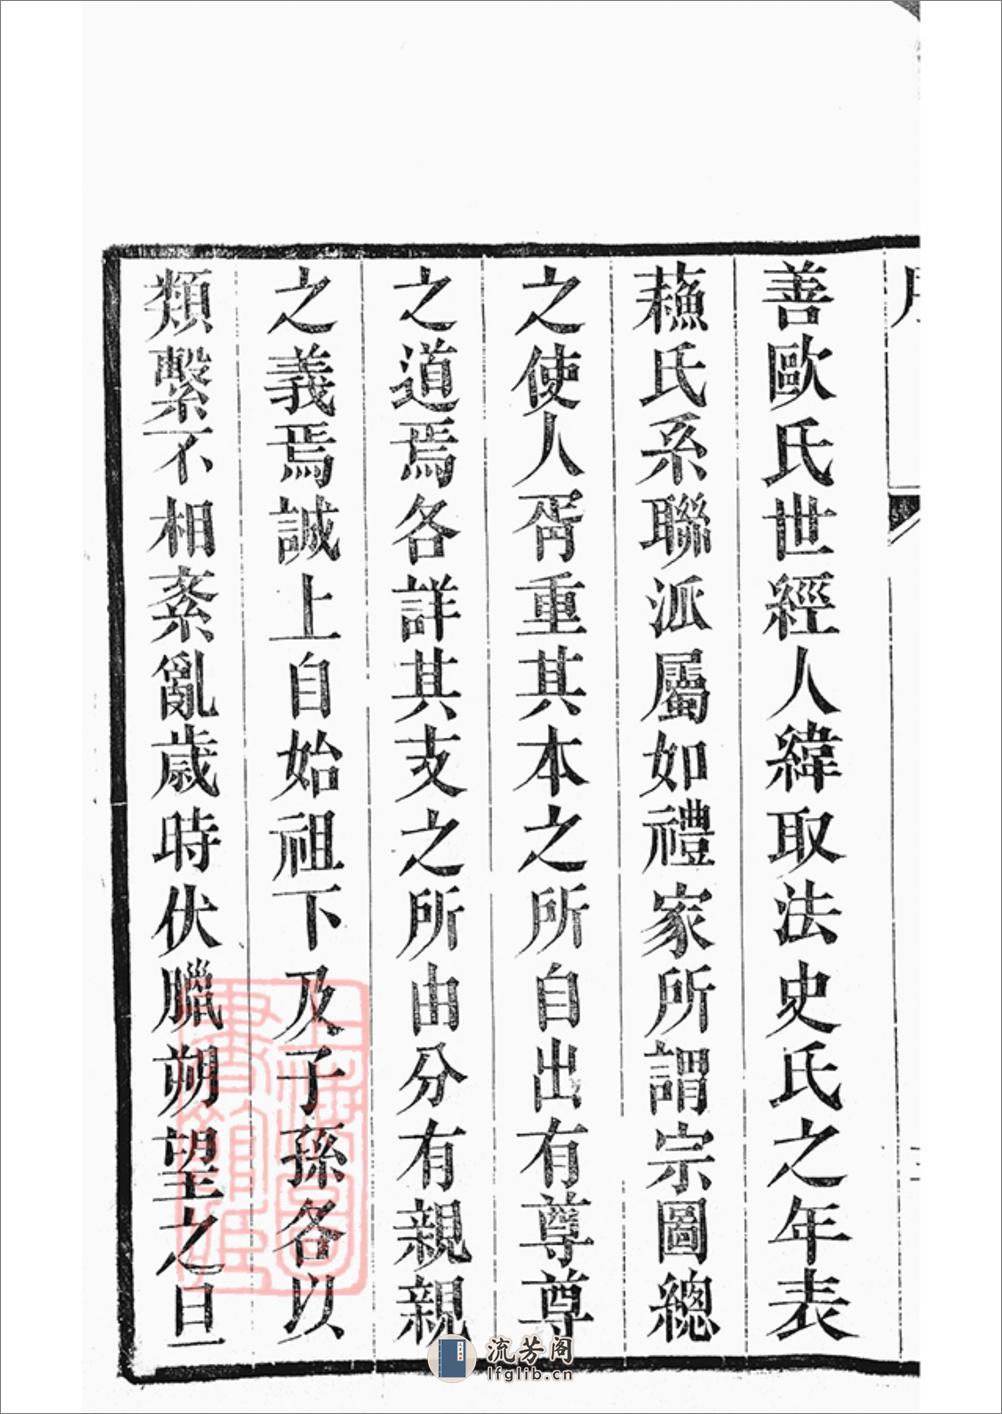 善歐氏世經人緯取法史氏之年表
蘓氏系聯派屬如禮家所謂宗圖總
之使人胥重其本之所自出有尊尊
之道焉各詳其支之所由分有親親
之義焉誠上自始祖下及子孫各以
類繫不相紊亂歲時伏臘朔望之旦
上海圖書館藏
流芳阁
lfglib.cn